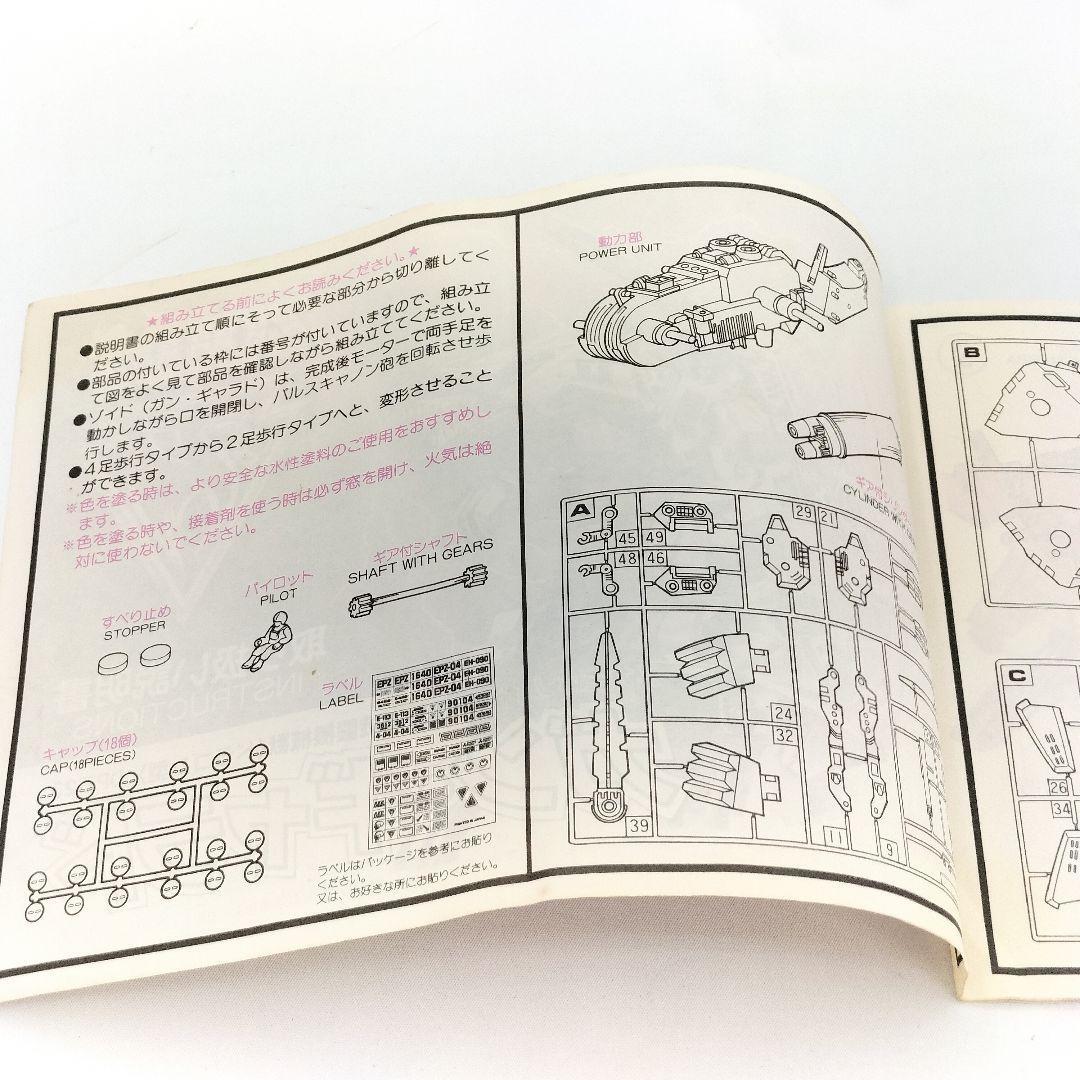 ★組み立てる前によくお読みください。★
●説明書の組み立て順にそって必要な部分から切り離してく
ださい。
●部品の付いている枠には番号が付いていますので、組み立
て図をよく見て部品を確認しながら組み立ててください。
●ゾイド（ガン・ギャラド）は、完成後モーターで両手足を
動かしながら口を開閉し、パルスキャノン砲を回転させ歩
行します。
●4足歩行タイプから2足歩行タイプへと、変形させること
ができます。
※色を塗る時は、より安全な水性塗料のご使用をおすすめし
ます。
※色を塗る時や、接着剤を使う時は必ず窓を開け、火気は絶
対に使わないでください。
すべり止め
STOPPER
パイロット
PILOT
ギア付シャフト
SHAFT WITH GEARS
キャップ(18個)
CAP(18PIECES)
ラベル
LABEL
EPZ EPZ 1640 EPZ-04 EH-090
1640 EPZ-04 EH-090
1640 EPZ-04 EH-090
E-113 E-113
3812 3812
A-04 A-04
90104
90104
90104
ラベルはパッケージを参考にお貼り
ください。
又は、お好きな所にお貼りください。
動力部
POWER UNIT
ギア付シ
CYLINDER WITH
A
45 49
48 46
29 21
24
32
39
11
9
B
C
26
34